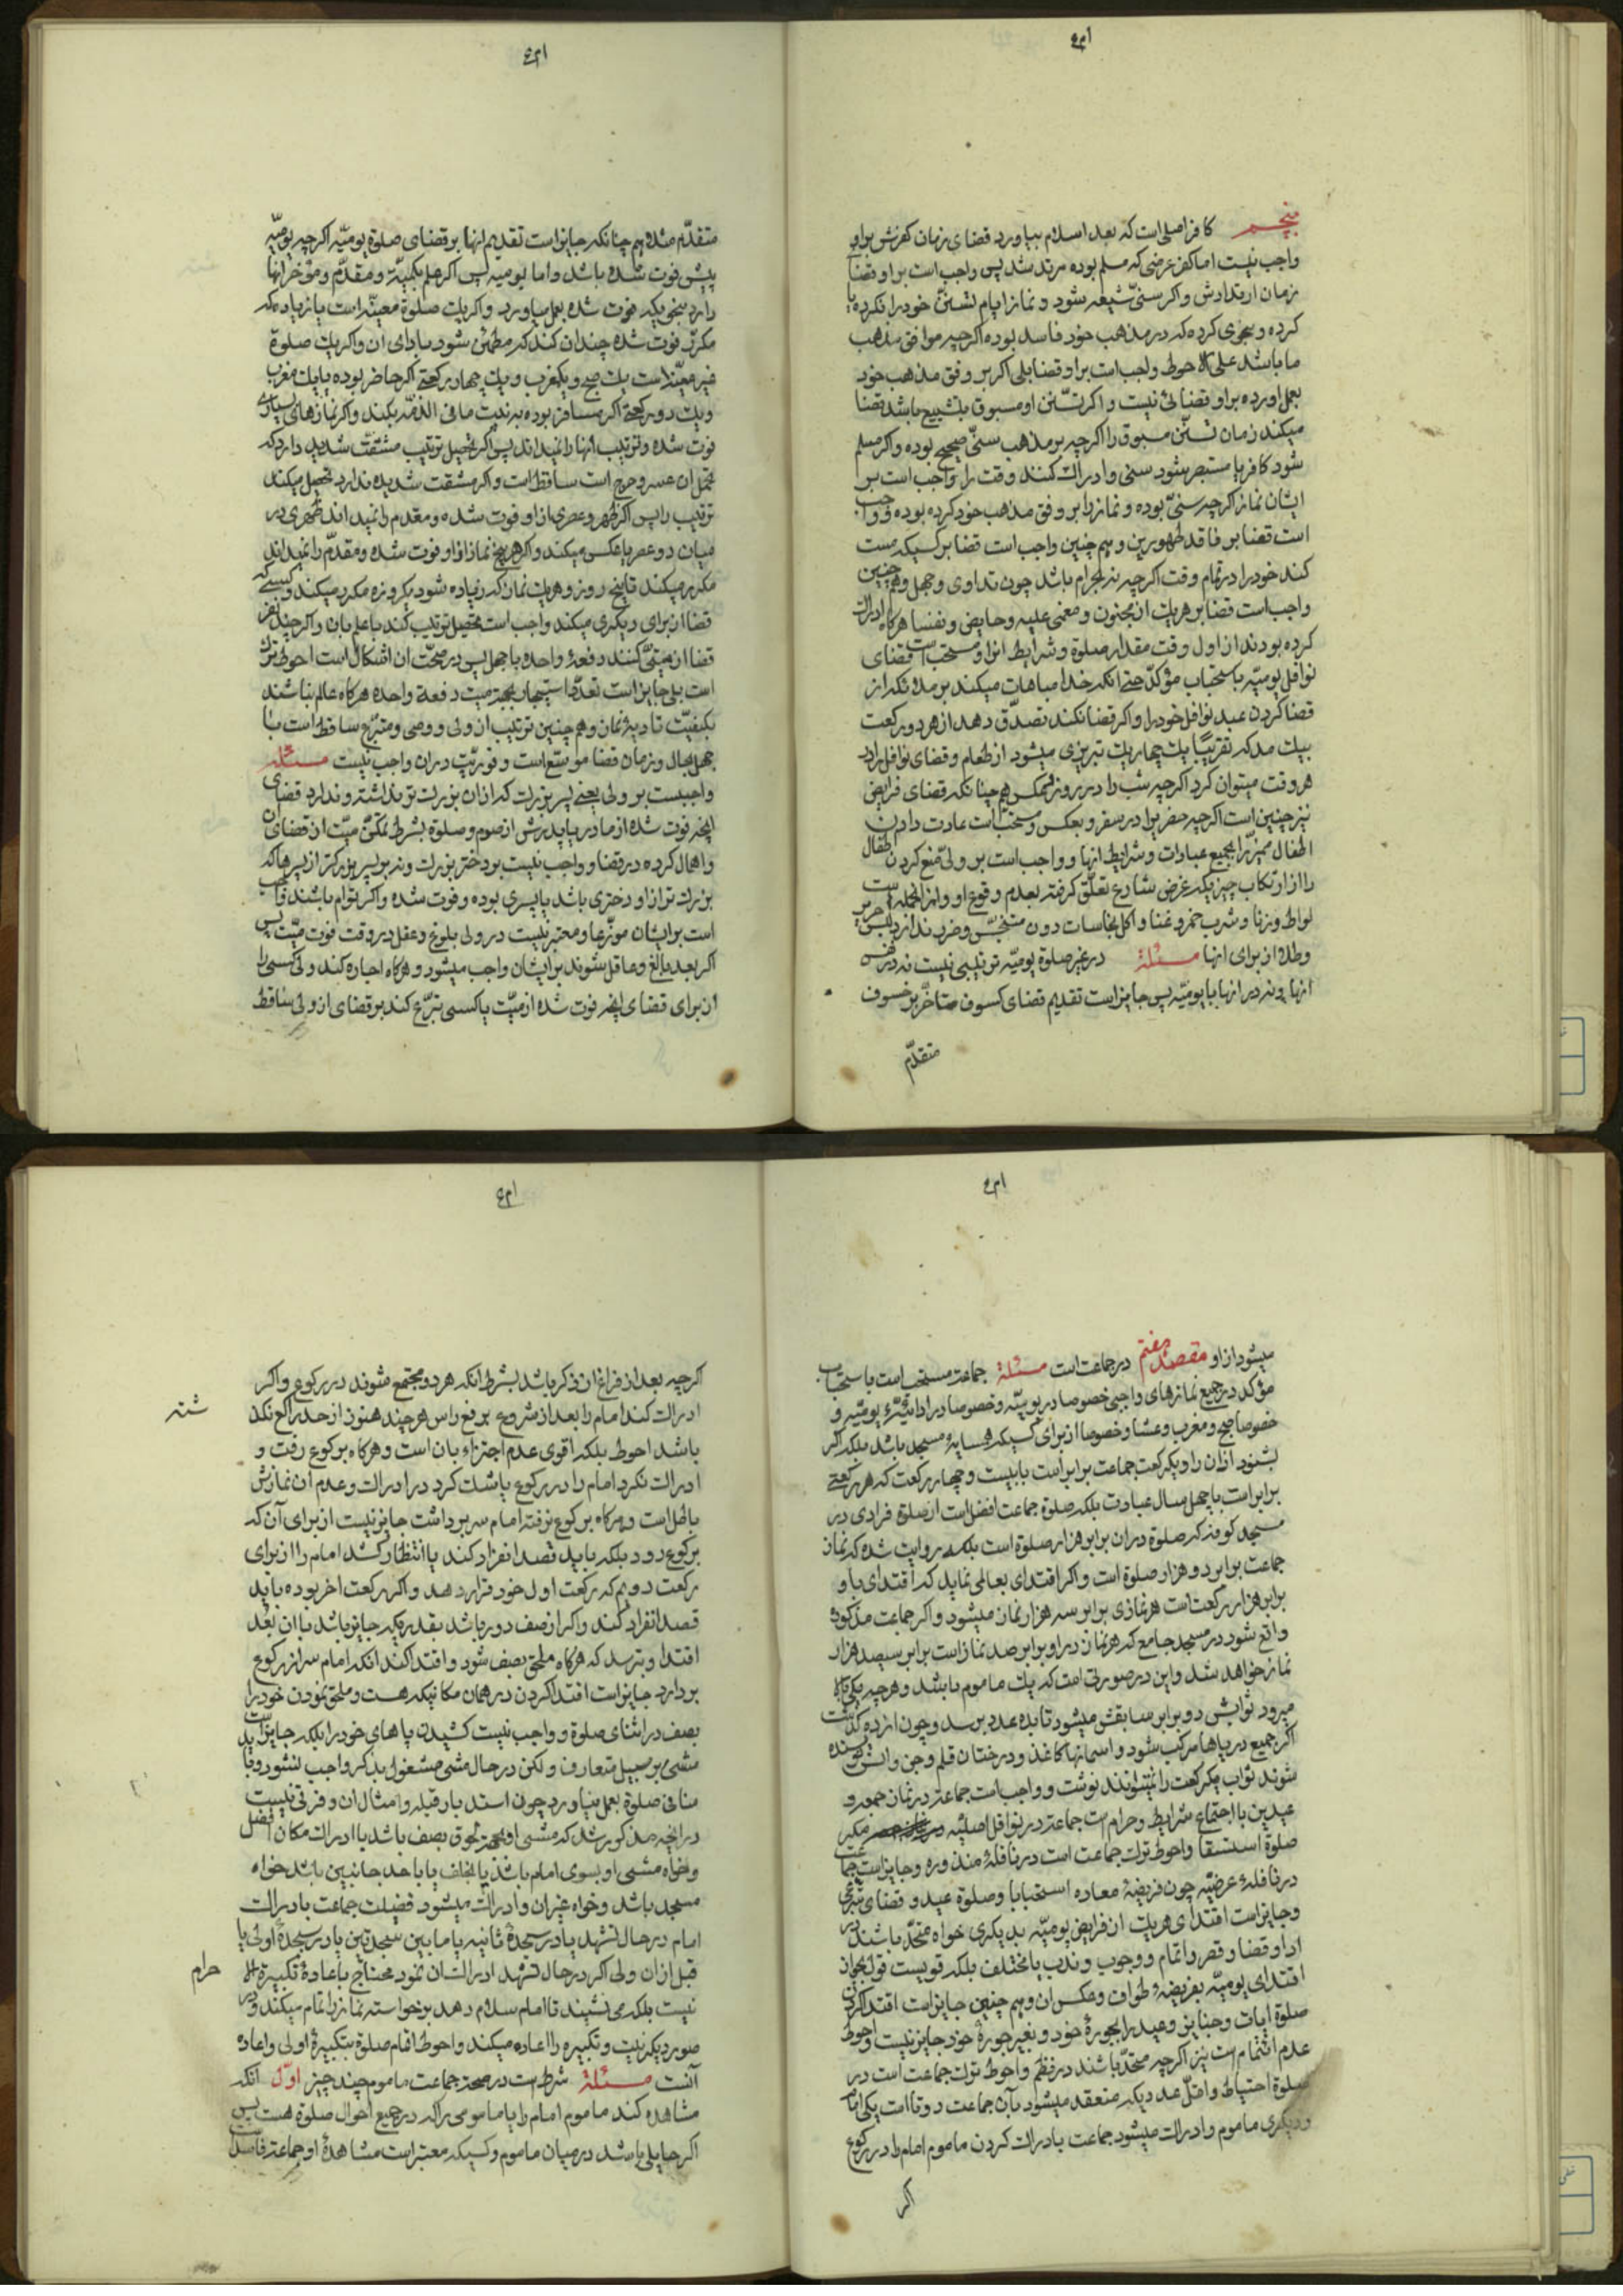 پنجم کافر اصلی است که بعد اسلام بیاورد قضای زمان کفرش براو
واجب نیست اما کفر عرضی که مسلم بوده مرتد شد پس واجب است براو قضا
زمان ارتدادش و اکر سنی شیعه شود و نماز ایام تسنن خود را نکرده یا
کرده و بنحوی کرده که در مذهب خود فاسد بوده اکرچه موافق مذهب
ما باشد علی الاحوط واجب است براو قضا بلی اکر بر وفق مذهب خود
بعمل اورده براو قضائی نیست و اکر تسنن او مسبوق بتشیع باشد قضا
میکند زمان تسنن مسبوق را اکرچه بر مذهب سنی صحیح بوده و اکر مسلم
شود کافر یا مستبصر شود سنی و ادراک کنند وقت را واجب است بر
ایشان نماز اکرچه سنی بوده و نماز را بر وفق مذهب خود کرده بوده و واجب
است قضا بر فاقد طهورین و هم چنین واجب است قضا بر کسیکه مست
کند خود را در تمام وقت اکرچه نه بحرام باشد چون تداوی و جهل و هم چنین
واجب است قضا بر هریک از مجنون و مغمی علیه و حایض و نفسا هرکاه ادراک
کرده بودند از اول وقت مقدار صلوة و شرایط انرا و مستحب است قضای
نوافل یومیه باستحباب مؤکد حتی انکه خدا مباهات میکند بر ملائکه از
قضا کردن عبد نوافل خود را و اکر قضا نکند تصدق دهد از هر دو رکعت
بیک مد که تقریبا یک چهاریک تبریزی میشود از طعام و قضای نوافل را در
هر وقت میتوان کرد اکرچه شب را در روز و بعکس هم چنانکه قضای فرایض
نیز چنین است اکرچه سفر را در سفر و بعکس و مستحب است عادت دادن
اطفال ممیز را بجمیع عبادات و شرایط انها و واجب است بر ولی منع کردن اطفال
را از ارتکاب چیزیکه غرض شارع تعلق کرفته بعدم وقوع او و از انجمله است
لواط و زنا و شرب خمر و غنا و اکل نجاسات دون متنجس و ضرر ندارد لبس حریر
و طلا از برای انها مسئلة در غیر صلوة یومیه ترتیبی نیست نه در نفس
انها و نه در انها با یومیه پس جایز است تقدیم قضای کسوف متاخر بر خسوف
متقدم
متقدم مثلا هم چنانکه جایز است تقدیم انها بر قضای صلوة یومیه اکرچه یومیه
پیش فوت شده باشد و اما یومیه پس اکر علم بکمیة و مقدم و مؤخر انها
دارد بنحویکه فوت شده بعمل میاورد و اکر یک صلوة معینه است یا زیاده که
مکرر فوت شده چندان کند که مطمئن شود بادای ان و اکر یک صلوة
غیر معینه است یک صبح و یک مغرب و یک چهار رکعتی اکر حاضر بوده یا یک مغرب
و یک دو رکعتی اکر مسافر بوده به نیت ما فی الذمه بکند و اکر نمازهای بسیاری
فوت شده و ترتیب انها را نمیداند پس اکر تحصیل ترتیب مشقت شدید دارد که
تحمل ان عسر و حرج است ساقط است و اکر مشقت شدیده ندارد تحصیل میکند
ترتیب را پس اکر ظهر و عصری از او فوت شده و مقدم را نمیداند ظهری در
میان دو عصر یا عکس میکند و اکر هر پنج نماز از او فوت شده و مقدم را نمیداند
مکرر میکند تا پنج روز و هریک نماز که زیاده شود یکروزه مکرر میکند و کسیکه
قضا از برای دیکری میکند واجب است تحصیل ترتیب کند با علم بان و اکر چند نفر
قضا از میتی کنند دفعة واحده با جهل پس در صحت ان اشکال است احوط ترک
است بلی جایز است تعدد استیجار بجهة میت دفعة واحده هرکاه عالم نباشند
بکیفیت تادیۀ نمازان و هم چنین ترتیب از ولی و وصی و متبرع ساقط است با
جهل بحال و زمان قضا موسع است و فوریت دران واجب نیست مسئله
واجبست بر ولی یعنی پسر بزرک که ازان بزرک تر نداشته و ندارد قضای
انچه فوت شده از مادر یا پدرش از صوم و صلوة بشرط تمکن میت از قضای ان
و اهمال کرده در قضا و واجب نیست بر دختر بزرک و نه بر پسر بزرکتر از پسرها که
بزرک تر از او دختری باشد یا پسری بوده و فوت شده و اکر توام باشند واجب
است بر ایشان موزعا و معتبر نیست در ولی بلوغ و عقل در وقت فوت میت پس
اکر بعد بالغ و عاقل شوند بر ایشان واجب میشود و هرکاه اجاره کند ولی کسی را
از برای قضای انچه فوت شده از میت یا کسی تبرع کند بر قضای ان از ولی ساقط
میشود از او مقصد هفتم در جماعت است مسئلة جماعت مستحب است باستحباب
مؤکد در جمیع نمازهای واجبی خصوصا در یومیه و خصوصا در ادائیۀ یومیه و
خصوصا صبح و مغرب و عشا و خصوصا از برای کسیکه همسایۀ مسجد باشد بلکه اکر
بشنود اذان را و یکرکعت جماعت برابر است با بیست و چهار رکعت که هر رکعتی
برابر است با چهل سال عبادت بلکه صلوة جماعت افضل است از صلوة فرادی در
مسجد کوفه که صلوة دران برابر هزار صلوة است بلکه روایت شده که نماز
جماعت برابر دو هزار صلوة است و اکر اقتدای بعالمی نماید که اقتدای باو
برابر هزار رکعت است هر نمازی برابر سه هزار نماز میشود و اکر جماعت مذکوره
واقع شود در مسجد جامع که هر نماز در او برابر صد نماز است برابر سیصد هزار
نماز خواهد شد و این در صورتی است که یک ماموم باشد و هرچه یکی بالا
میرود ثوابش دو برابر سابقش میشود تا بده عدد برسد و چون از ده کذشت
اکر جمیع دریاها مرکب شود و اسمانها کاغذ و درختان قلم و جن و انس نویسنده
شوند ثواب یکرکعت را نمیتوانند نوشت و واجب است جماعة در نماز جمعه و
عیدین با اجتماع شرایط و حرام است جماعة در نوافل اصلیه مکر
صلوة استسقا و احوط ترک جماعت است در نافلۀ منذوره و جایز است جماعت
در نافلۀ عرضیه چون فریضۀ معاده استحبابا و صلوة عید و قضای تبرعی
و جایز است اقتدای هریک از فرایض یومیه بدیکری خواه متحد باشند در
ادا و قضا و قصر و اتمام و وجوب و ندب یا مختلف بلکه قویست قول بجواز
اقتدای یومیه بفریضۀ طواف و عکس ان و هم چنین جایز است اقتدا کردن
صلوة ایات و جنایز و عید را بجورۀ خود و بغیر جورۀ خود جایز نیست و احوط
عدم ائتمام است نیز اکرچه متحد باشند در نظم و احوط ترک جماعت است در
صلوة احتیاط و اقل عددیکه منعقد میشود بآن جماعت دوتا است یکی امام
و دیکری ماموم و ادراک میشود جماعت بادراک کردن ماموم امام را در رکوع
اکر
اکرچه بعد از فراغ از ذکر باشد بشرط انکه هردو مجتمع شوند در رکوع و اکر
ادراک کند امام را بعد از شروع برفع راس هرچند هنوز از حد راکع نکذ
شته
باشد احوط بلکه اقوی عدم اجتزاء بان است و هرکاه برکوع رفت و
ادراک نکرد امام را در رکوع یا شک کرد در ادراک و عدم ان نمازش
باطل است و هرکاه برکوع نرفته امام سر برداشت جایز نیست از برای آن که
برکوع رود بلکه باید قصد انفراد کند یا انتظار کشد امام را از برای
رکعت دویم که رکعت اول خود قرار دهد و اکر رکعت اخر بوده باید
قصد انفراد کند و اکر از صف دور باشد بقدریکه جایز باشد با ان بعد
اقتدا و بترسد که هرکاه ملحق بصف شود و اقتدا کند انکه امام سر از رکوع
بردارد جایز است اقتدا کردن در همان مکانیکه هست و ملحق نمودن خود را
بصف در اثنای صلوة و واجب نیست کشیدن پاهای خود را بلکه جایز است
مشی بر سبیل متعارف و لکن در حال مشی مشغول بذکر واجب نشود و باید
منافی صلوة بعمل نیاورد چون استدبار قبله و امثال ان و فرقی نیست
در انچه مذکور شد که مشی او بجهة لحوق بصف باشد یا ادراک مکان افضل
و خواه مشی او بسوی امام باشد یا بخلف یا باحد جانبین باشد خواه
مسجد باشد و خواه غیر ان و ادراک میشود فضیلت جماعت بادراک
امام در حال تشهد یا در سجدۀ ثانیه یا مابین سجدتین یا در سجدۀ اولی یا
قبل ازان ولی اکر در حال تشهد ادراک ان نمود محتاج باعادۀ تکبیرة الا
حرام
نیست بلکه می نشیند تا امام سلام دهد برخواسته نماز را تمام میکند و در
صور دیکر نیت و تکبیره را اعاده میکند و احوط اتمام صلوة بتکبیرۀ اولی و اعاده
آنست مسئلة شرط است در صحة جماعت ماموم چند چیز اول انکه
مشاهده کند ماموم امام را یا مامومی را که در جمیع احوال صلوة هست پس
اکر حایلی باشد در میان ماموم و کسیکه معتبر است مشاهدۀ او جماعة فاسد است